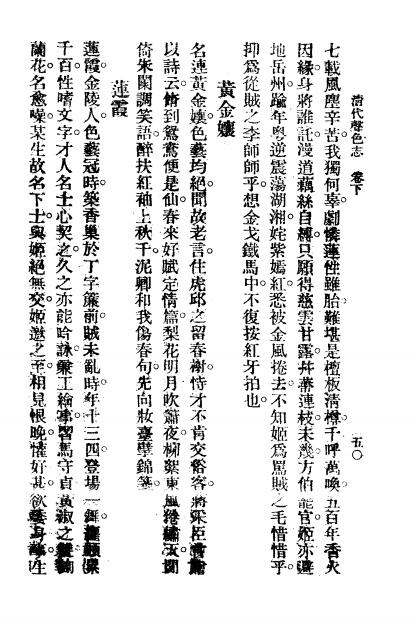 清代聲色志 卷下 五〇
七載風塵辛苦我獨何辜劇憐蓮性雖胎難堪是檀板清樽千呼萬喚五百年香火
因緣身將誰託漫道藕絲自縛只願得慈雲甘露幷蒂連枝未幾方伯罷官姬亦避
地岳州踰年粵逆震蕩湖湘姹紫嫣紅悉被金風捲去不知姬爲罵賊之毛惜惜乎
抑爲從賊之李師師乎想金戈鐵馬中不復按紅牙拍也
黃金孃
名連黃金孃色藝均絕聞故老言住虎邱之留春榭恃才不肯交俗客
以詩云脩到鴛鴦便是仙春來好賦定情篇梨花明月吹簫夜柳絮東風
倚朱闌調笑語醉扶紅袖上秋千泥卿和我傷春句先向妝臺擘錦箋
蓮霞
蓮霞金陵人色藝冠時築香巢於丁字簾前賊未亂時年十三四登場一
千百性嗜文字才人名士心契之久之亦能吟詠兼工繪事習馬守貞黃淑之
蘭花名愈噪某生故名下士與姬絕無交姬邀之至相見恨晚懽好甚欲